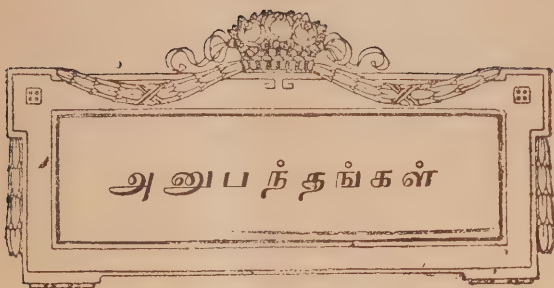 அனுபந்தங்கள்